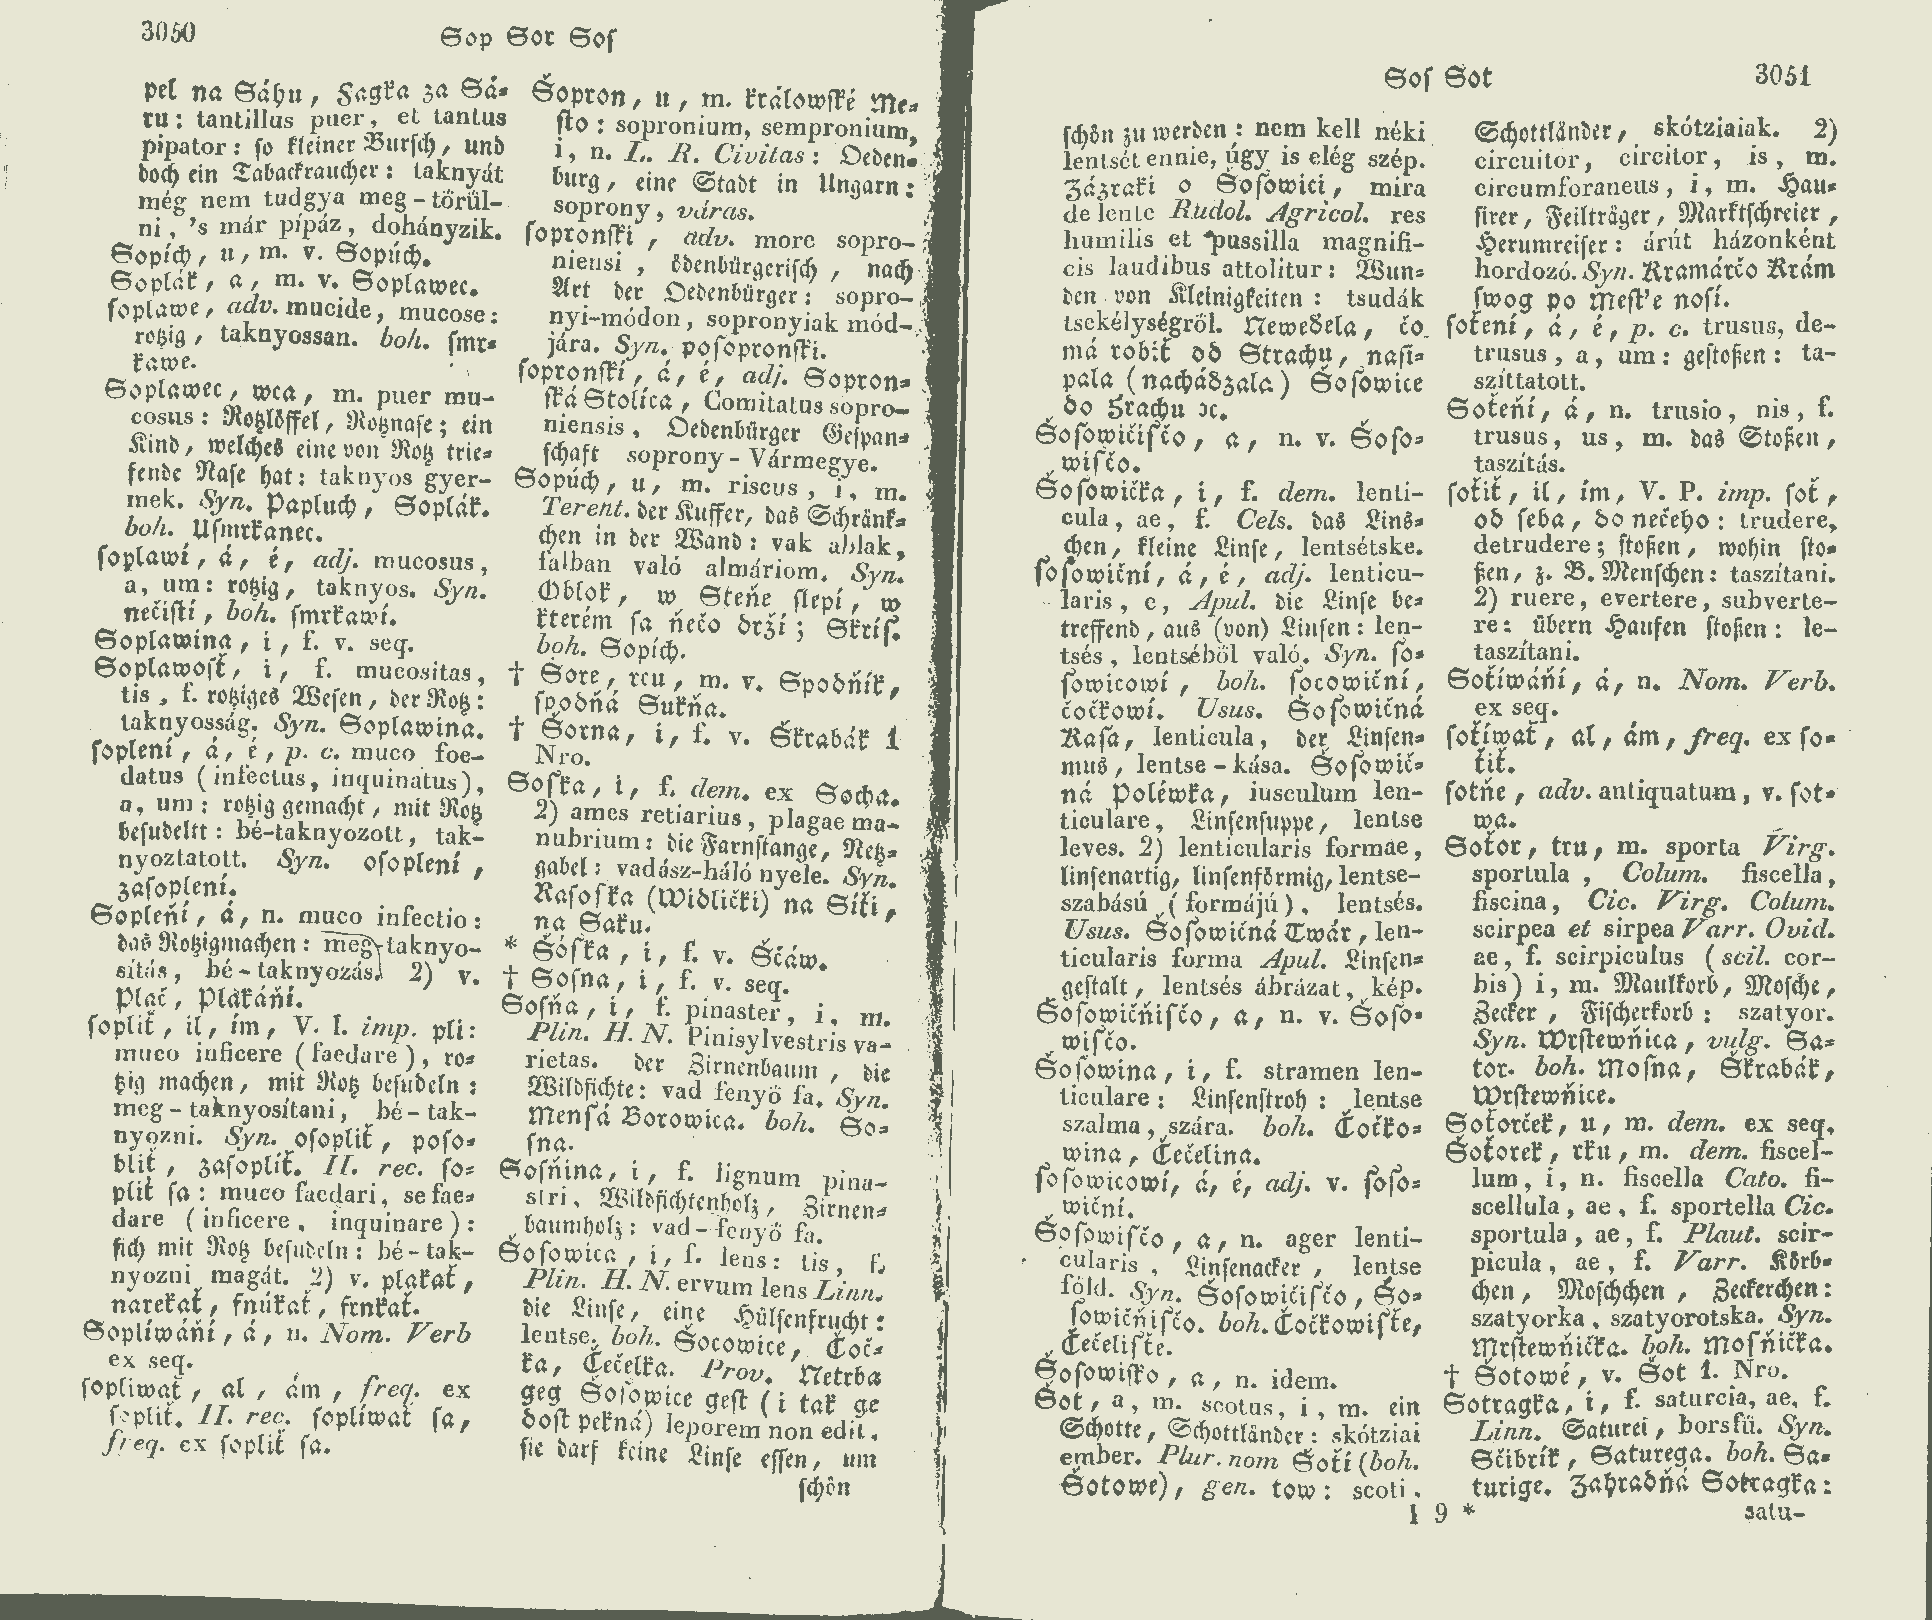 3050
Sop Sor Sos
pel na Sáhu, Fagka za Sá-
ru: tantillus puer, et tantus
pipator: so kleiner Bursch, und
doch ein Tabackraucher: taknyát
még nem tudgya meg-törül-
ni, 's már pípáz, dohányzik.
Sopích, u, m. v. Sopúch.
Soplák, a, m. v. Soplawec.
soplawe, adv. mucide, mucose:
rotzig, taknyossan. boh. smr-
kawe.
Soplawec, wca, m. puer mu-
cosus: Rotzlöffel, Rotznase; ein
Kind, welches eine von Rotz trie-
fende Nase hat: taknyos gyer-
mek. Syn. Papluch, Soplák.
boh. Usmrkanec.
soplawí, á, é, adj. mucosus,
a, um: rotzig, taknyos. Syn.
nečistí, boh. smrkawí.
Soplawina, i, f. v. seq.
Soplawosť, i, f. mucositas,
tis, f. rotziges Wesen, der Rotz:
taknyosság. Syn. Soplawina.
soplení, á, é, p. c. muco foe-
datus (infectus, inquinatus),
a, um: rotzig gemacht, mit Rotz
besudeltt: bé-taknyozott, tak-
nyoztatott. Syn. osoplení,
zasoplení.
Sopleňí, á, n. muco infectio:
das Rotzigmachen: meg-taknyo-
sítás, bé-taknyozás. 2) v.
Plač, Plakáňí.
sopliť, il, ím, V. I. imp. pli:
muco inficere (faedare), ro-
tzig machen, mit Rotz besudeln:
meg-taknyosítani, bé-tak-
nyozni. Syn. osopliť, poso-
bliť, zasopliť. II. rec. so-
pliť sa: muco faedari, se fae-
dare (inficere, inquinare):
sich mit Rotz besudeln: bé-tak-
nyozni magát. 2) v. plakať,
narekať, fnúkať, frnkať.
Soplíwáňí, á, n. Nom. Verb
ex seq.
sopliwať, al, ám, freq. ex
sopliť. II. rec. soplíwať sa,
freq. ex sopliť sa.
Šopron, u, m. králowské Me-
sto: sopronium, sempronium,
i, n. L. R. Civitas: Oeden-
burg, eine Stadt in Ungarn:
soprony, város.
sopronski, adv. more sopro-
niensi, ödenbürgerisch, nach
Art der Oedenbürger: sopro-
nyi-módon, sopronyiak mód-
jára. Syn. posopronski.
sopronskí, á, é, adj. Sopron-
ská Stolíca, Comitatus sopro-
niensis, Oedenbürger Gespan-
schaft soprony-Vármegye.
Sopúch, u, m. riscus, i, m.
Terent. der Kuffer, das Schränk-
chen in der Wand: vak ablak,
falban való almáriom. Syn.
Oblok, w Steňe slepí, w
kterém sa ňečo drží; Skrís.
boh. Sopích.
† Sore, rcu, m. v. Spodňík,
spodňá Sukňa.
† Šorna, i, f. v. Škrabák 1
Nro.
Soska, i, f. dem. ex Socha.
2) ames retiarius, plagae ma-
nubrium: die Farnstange, Netz-
gabel: vadász-háló nyele. Syn.
Rasoska (Widlički) na Síťi,
na Saku.
* Šóska, i, f. v. Ščáw.
† Sosna, i, f. v. seq.
Sosňa, i, f. pinaster, i, m.
Plin. H. N. Pinisylvestris va-
rietas. der Zirnenbaum, die
Wildfichte: vad fenyö fa. Syn.
Menšá Borowica. boh. So-
sna.
Sosňina, i, f. lignum pina-
stri, Wildfichtenholz, Zirnen-
baumholz: vad-fenyö fa.
Šosowica, i, f. lens: tis, f.
Plin. H. N. ervum lens Linn.
die Linse, eine Hülsenfrucht:
lentse. boh. Šocowice, Čoč-
ka, Čečelka. Prov. Netrba
geg Šosowice gest (i tak ge
dost pekná) leporem non edit.
sie darf keine Linse essen, um
schön
Sos Sot
3051
schön zu werden: nem kell néki
lentsét ennie, úgy is elég szép.
Zázraki o Šosowici, mira
de lente Rudol. Agricol. res
humilis et pussilla magnifi-
cis laudibus attolitur: Wun-
den von Kleinigkeiten: tsudák
tsekélységröl. Newedela, čo
má robiť od Strachu, nasi-
pala (nachádzala) Šosowice
do Hrachu ꝛc.
Šosowičisčo, a, n. v. Šoso-
wisčo.
Šosowička, i, f. dem. lenti-
cula, ae, f. Cels. das Lins-
chen, kleine Linse, lentsétske.
šosowiční, á, é, adj. lenticu-
laris, e, Apul. die Linse be-
treffend, aus (von) Linsen: len-
tsés, lentséböl való. Syn. šo-
sowicowí, boh. šocowiční,
čočkowí. Usus. Šosowičná
Kasa, lenticula, der Linsen-
mus, lentse-kása. Šosowič-
ná Poléwka, iusculum len-
ticulare, Linsensuppe, lentse
leves. 2) lenticularis formae,
linsenartig, linsenförmig, lentse-
szabású (formájú), lentsés.
Usus. Šosowičná Twár, len-
ticularis forma Apul. Linsen-
gestalt, lentsés ábrázat, kép.
Šosowičňisčo, a, n. v. Šoso-
wisčo.
Šosowina, i, f. stramen len-
ticulare: Linsenstroh: lentse
szalma, szára. boh. Čočko-
wina, Čečelina.
šosowicowí, á, é, adj. v. šoso-
wiční.
Šosowisčo, a, n. ager lenti-
cularis, Linsenacker, lentse
föld. Syn. Šosowičisčo, Šo-
sowičňisčo. boh. Čočkowiste,
Čečeliste.
Šosowisko, a, n. idem.
Šot, a, m. scotus, i, m. ein
Schotte, Schottländer: skótziai
ember. Plur. nom Šoťi (boh.
Šotowe), gen. tow: scoti.
Schottländer, skótziaiak. 2)
circuitor, circitor, is, m.
circumforaneus, i, m. Hau-
sirer, Feilträger, Marktschreier,
Herumreiser: árút házonként
hordozó. Syn. Kramárčo Krám
swog po Mest'e nosí.
soťení, á, é, p. c. trusus, de-
trusus, a, um: gestoßen: ta-
szíttatott.
Soťeňí, á, n. trusio, nis, f.
trusus, us, m. das Stoßen,
taszítás.
soťiť, il, ím, V. P. imp. soť,
od seba, do nečeho: trudere,
detrudere; stoßen, wohin sto-
ßen, z. B. Menschen: taszítani.
2) ruere, evertere, subverte-
re: übern Haufen stoßen: le-
taszítani.
Soťíwáňí, á, n. Nom. Verb.
ex seq.
soťíwať, al, ám, freq. ex so-
ťiť.
sotňe, adv. antiquatum, v. sot-
wa.
Soťor, tru, m. sporta Virg.
sportula, Colum. fiscella,
fiscina, Cic. Virg. Colum.
scirpea et sirpea Varr. Ovid.
ae, f. scirpiculus (scil. cor-
bis) i, m. Maulkorb, Mosche,
Zecker, Fischerkorb: szatyor.
Syn. Wrstewňica, vulg. Sa-
tor. boh. Mosna, Škrabák,
Wrstewňice.
Soťorček, u, m. dem. ex seq.
Soťorek, rku, m. dem. fiscel-
lum, i, n. fiscella Cato. fi-
scellula, ae, f. sportella Cic.
sportula, ae, f. Plaut. scir-
picula, ae, f. Varr. Körb-
chen, Moschchen, Zeckerchen:
szatyorka, szatyorotska. Syn.
Mrstewňička. boh. Mosňička.
† Šotowé, v. Šot 1. Nro.
Sotragka, i, f. saturcia, ae, f.
Linn. Saturei, borsfü. Syn.
Sčibrík, Saturega. boh. Sa-
turige. Zahradňá Sotragka:
1 9 *
satu-